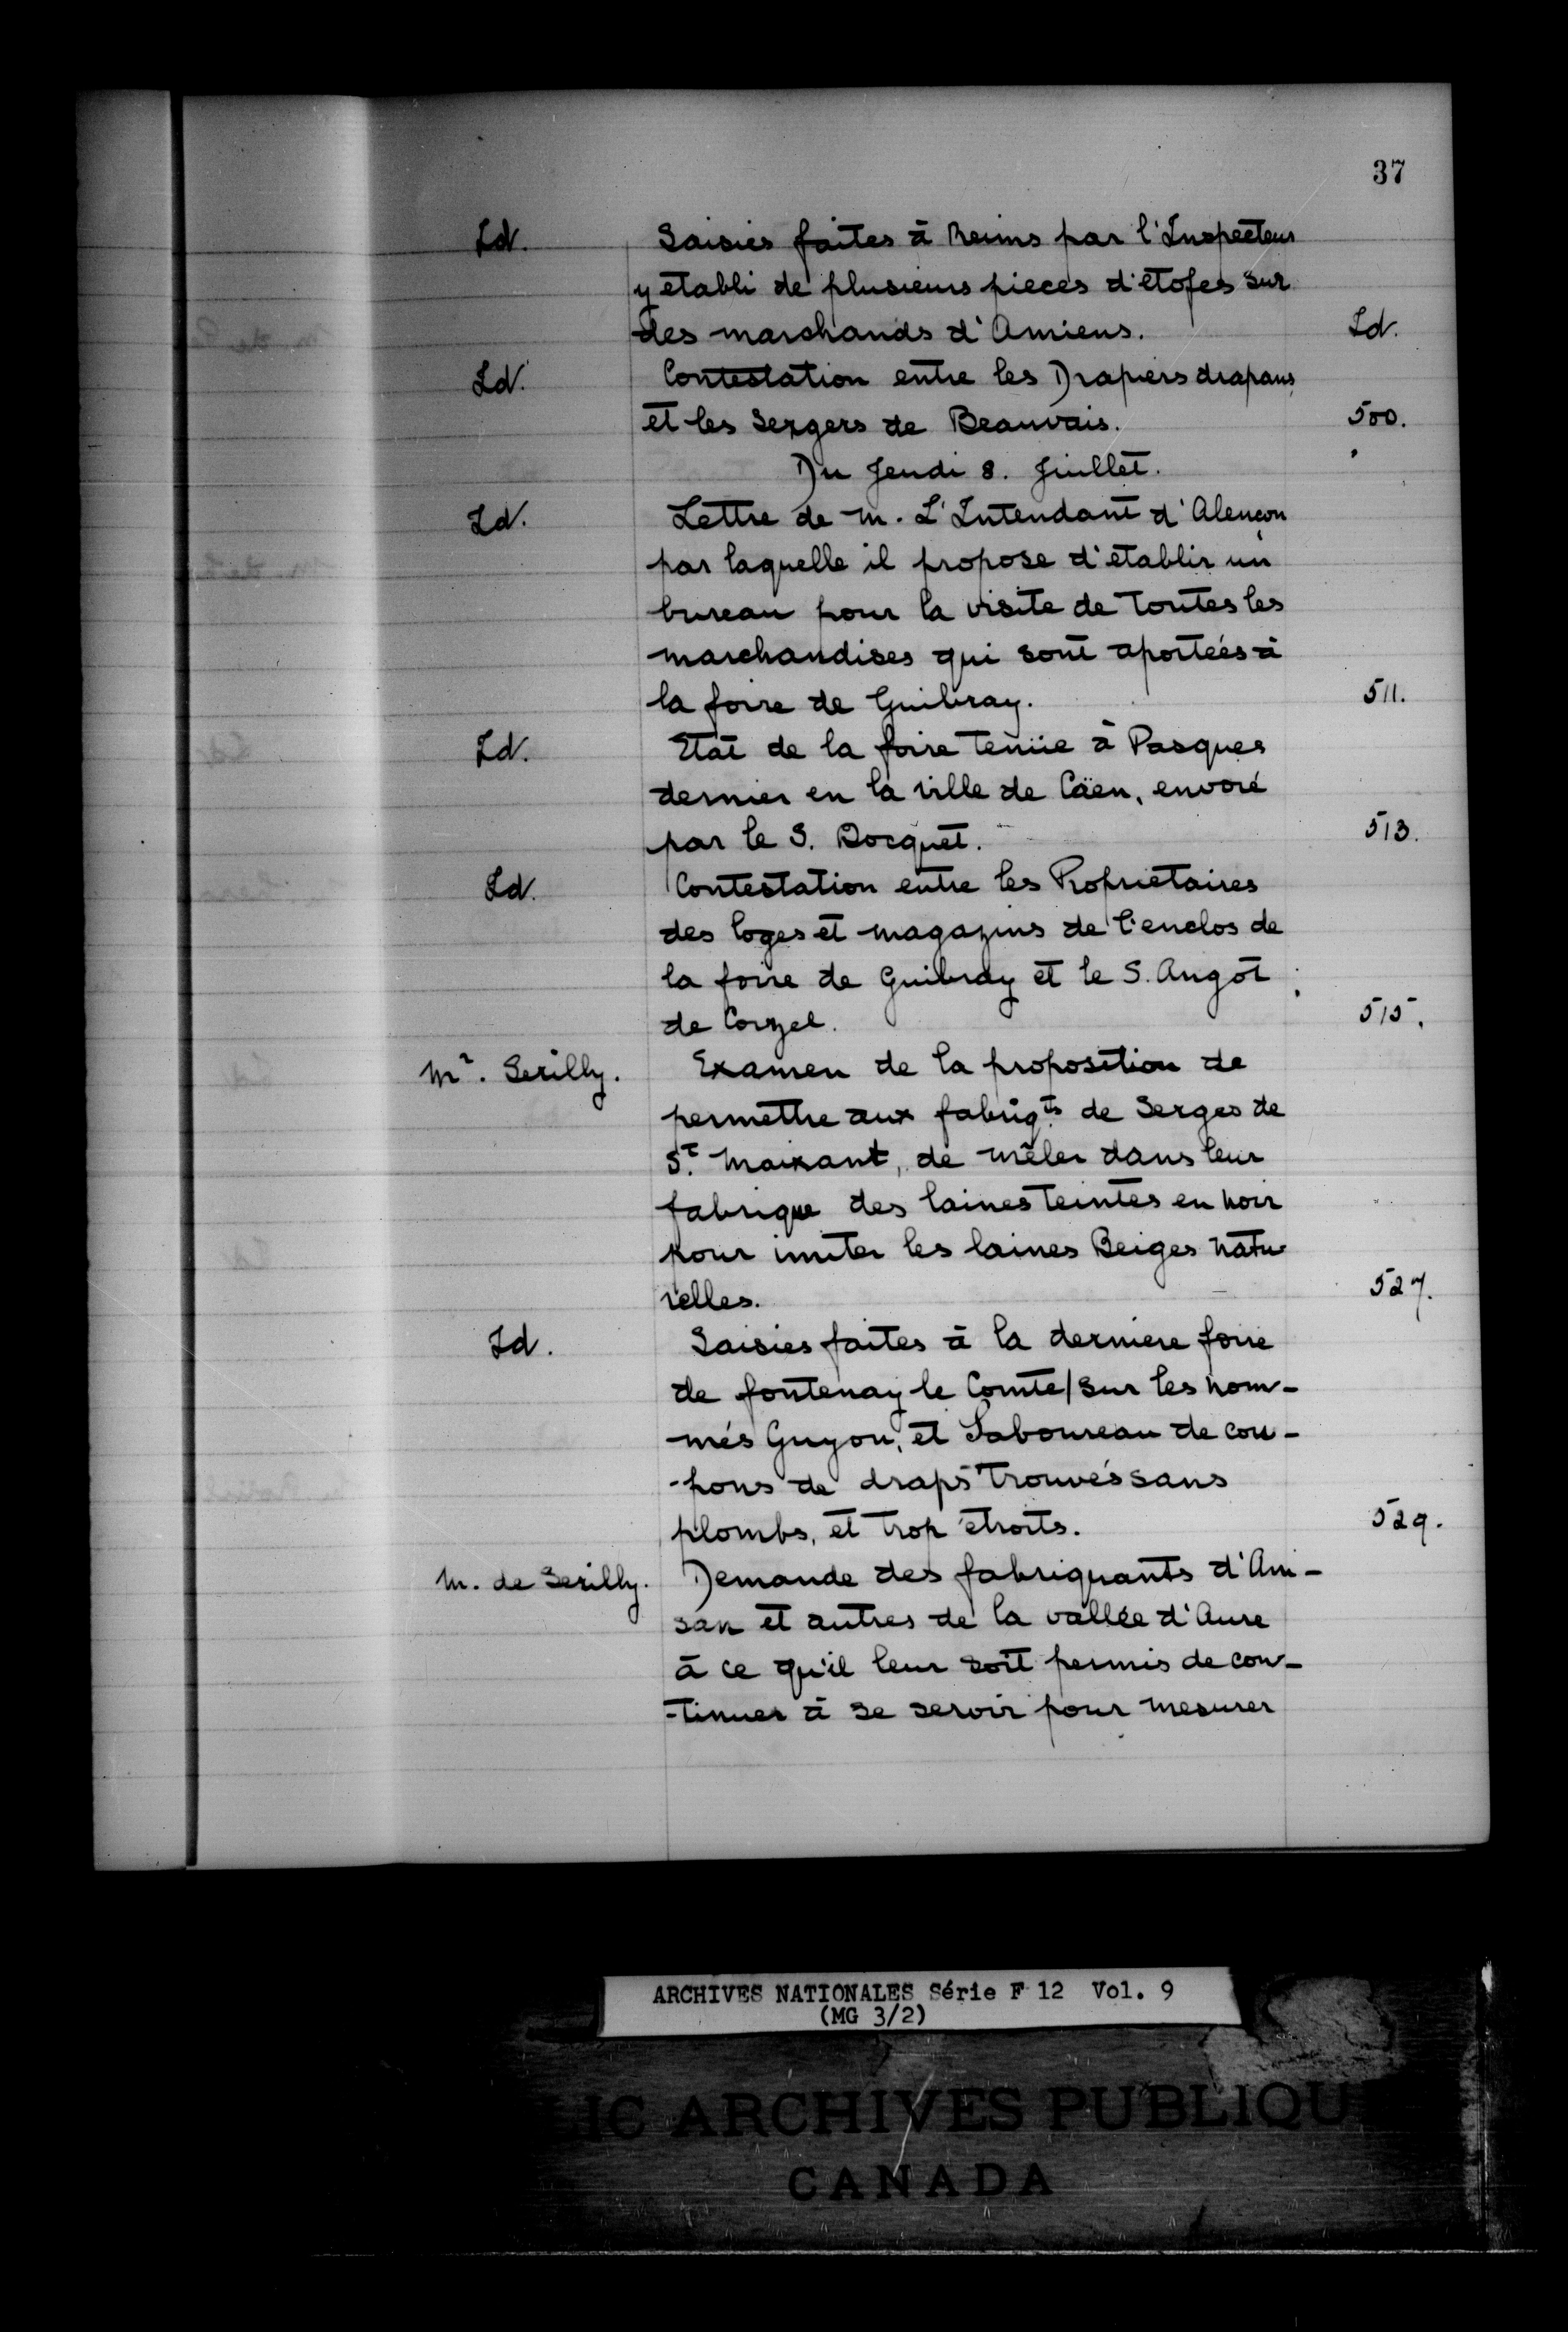 37
Id. Saisies faites à Reims par l'Inspecteur
y etabli de plusieurs pieces d'etofes sur
des marchands d'Amiens. Id.
Id. Contestation entre les Drapiers drapans
et les Sergers de Beauvais. 500.
Du Jeudi 8. Juillet.
Id. Lettre de M. L'Intendant d'Alençon
par laquelle il propose d'etablir un
bureau pour la visite de toutes les
marchandises qui sont aportées à
la foire de Guibray. 511.
Id. Etat de la foire tenüe à Pasques
dernier en la ville de Cäen, envoié
par le S. Bocquet. 513.
Id. Contestation entre les Proprietaires
des loges et magazins de l'enclos de
la foire de Guibray et le S. Angot
de Corzel. 515.
Mr. Serilly. Examen de la proposition de
permettre aux fabriqts. de Serges de
St. Maixant, de mêler dans leur
fabrique des laines teintes en noir
pour imiter les laines Beiges natu-
relles. 527.
Id. Saisies faites à la derniere foire
de fontenay le Comte/sur les nom-
més Guyon, et Laboureau de cou-
-pons de draps trouvés sans
plombs, et trop etroits. 529.
M. de Serilly. Demande des fabriquants d'Am-
san et autres de la vallée d'Aure
à ce qu'il leur soit permis de con-
-tinuer à se servir pour mesurer
ARCHIVES NATIONALES Série F 12 Vol. 9
(MG 3/2)
LIC ARCHIVES PUBLIQU
CANADA